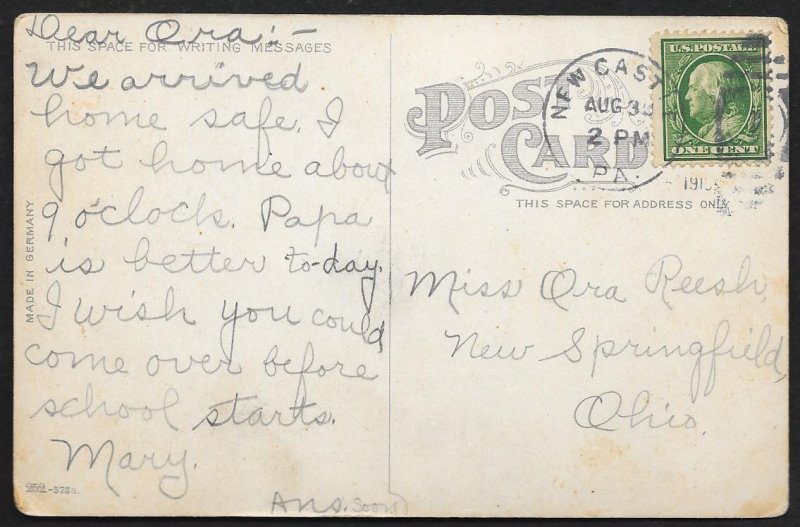 Dear Ora:-
THIS SPACE FOR WRITING MESSAGES
We arrived
home safe. I
got home about
9 o'clock. Papa
is better to-day.
I wish you could
come over before
school starts.
Mary.
Ans. soon
MADE IN GERMANY
POST CARD
THIS SPACE FOR ADDRESS ONLY
NEW CAST
AUG 3
2 PM
PA.
U.S. POSTAGE
ONE CENT
Miss Ora Reesh,
New Springfield,
Ohio.